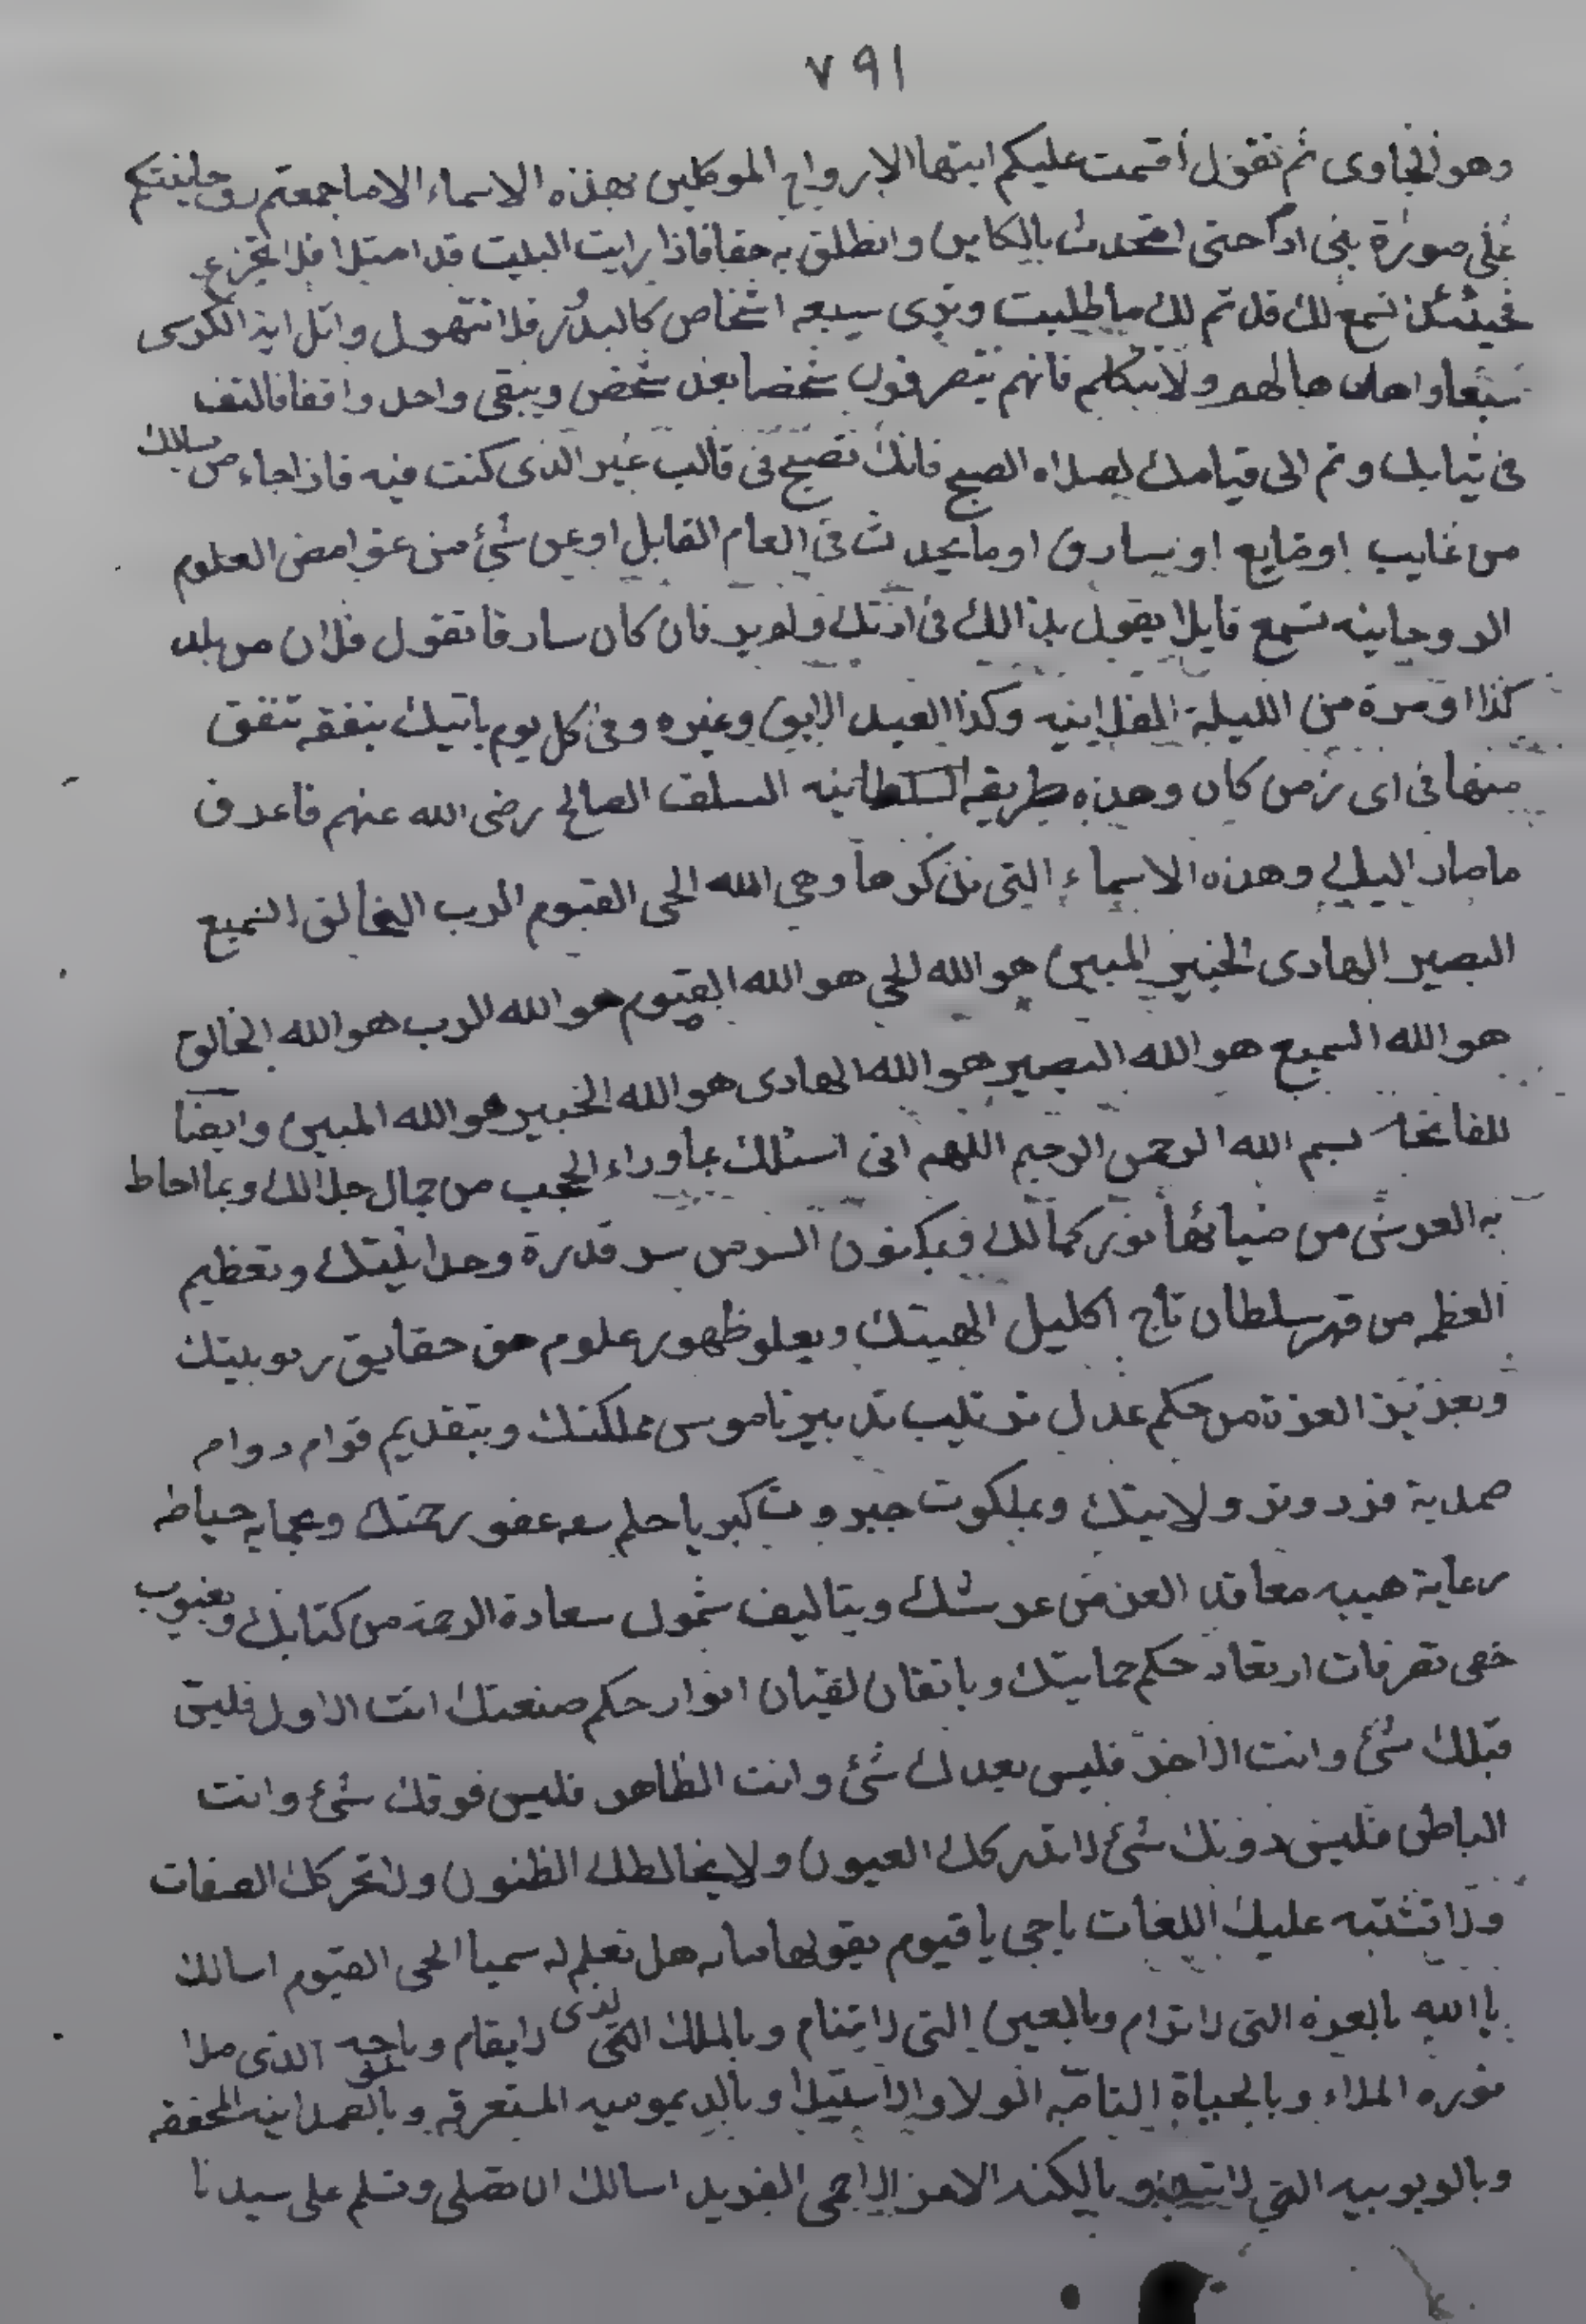 ٧٩١
وهو الجاوى ثم تقول أقسمت عليكم ايتها الارواح الموكلين بهذه الاسماء الا ما جمعتم روحانيتكم
على صورة بنى ادم حتى اتحدث بالكاين وانطلق به حقا فاذا رايت البيت قد امتلا فلا تجزع
فحينئذ تسمع لك قد تم لك ما طلبت وترى سبعه اشخاص كالبدر فلا تنهول واتل اية الكرسى
سبعا واهدها لهم ولا تتكلم فانهم يتصرفون شخصا بعد شخص ويبقى واحد واقفا فالتف
فى ثيابك ونم الى قيامك لصلاه الصبح فانك تصبح فى قالب غير الذى كنت فيه فاذا جاء من يسالك
من غايب او ضايع او سارق او ما يحدث فى العام القابل او عن شئ من غوامض العلوم
الروحانيه تسمع قايلا يقول بذالك فى اذنك ولم ير فان كان سارقا تقول فلان من بلد
كذا او مرة من الليلة الفلانيه وكذا العبد الابق وغيره وفى كل يوم ياتيك بنفقه تنفق
منها فى اى زمن كان وهذه طريقه السلطانيه السلف الصالح رضى الله عنهم فاعرف
ما صار اليك وهذه الاسماء التى تذكرها وهى الله الحى القيوم الرب الخالق السميع
البصير الهادى الخبير المبين هو الله الحى هو الله القيوم هو الله الرب هو الله الخالق
هو الله السميع هو الله البصير هو الله الهادى هو الله الخبير هو الله المبين وايضا
للفاتحة بسم الله الرحمن الرحيم اللهم انى اسئلك بما وراء الحجب من جمال جلالك وبما احاط
به العرش من ضيائها نور كمالك فيكنون السر من سر قدرة وحدانيتك وتعظيم
العظمه من قهر سلطان تاج اكليل الهيتك وبعلو ظهور علوم حق حقايق ربوبيتك
وبعزيز العزة من حكم عدل ترتيب تدبير ناموس مملكتك وبتقديم قوام دوام
صمدية فرد وتر ولايتك وبملكوت جبروت كبريا حلم سعه عفو رحمتك وبحمايه حياطه
رعاية هيبه معاقد العز من عرشك وبتاليف شمول سعادة الرحمة من كتابك وبغيوب
خفى تصرفات ارتعاد حكم حمايتك وباتقان لقيان انوار حكم صنعتك انت الاول فليس
قبلك شئ وانت الاخر فليس بعدك شئ وانت الظاهر فليس فوقك شئ وانت
الباطن فليس دونك شئ لا تدركك العيون ولا يخالطك الظنون ولا تحركك الصفات
ولا تشتبه عليك اللغات ياحى ياقيوم يقولها مايه هل تعلم له سميا الحى القيوم اسالك
يا الله بالعزه التى لا ترام وبالعين التى لا تنام وبالملك الذى لا يقام وباحد الذى ملا
نوره الملاء وبالحياة التامه الولا والاستيلا وبالديموميه المستغرقه وبالصمدانيه المحققه
وبالربوبيه التى وبالكنه الاعز الاحمى الفريد اسالك ان تصلى وتسلم على سيدنا